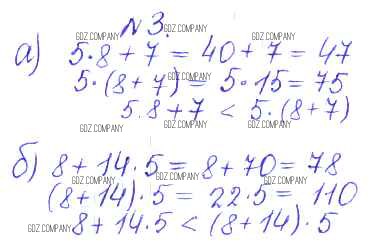 №3.
а) 5·8 + 7 = 40 + 7 = 47
5·(8 + 7) = 5·15 = 75
5·8 + 7 < 5·(8 + 7)
б) 8 + 14·5 = 8 + 70 = 78
(8 + 14)·5 = 22·5 = 110
8 + 14·5 < (8 + 14)·5
GDZ.COMPANY
GDZ.COMPANY
GDZ.COMPANY
GDZ.COMPANY
GDZ.COMPANY
GDZ.COMPANY
GDZ.COMPANY
GDZ.COMPANY
GDZ.COMPANY
GDZ.COMPANY
GDZ.COMPANY
GDZ.COMPANY
GDZ.COMPANY